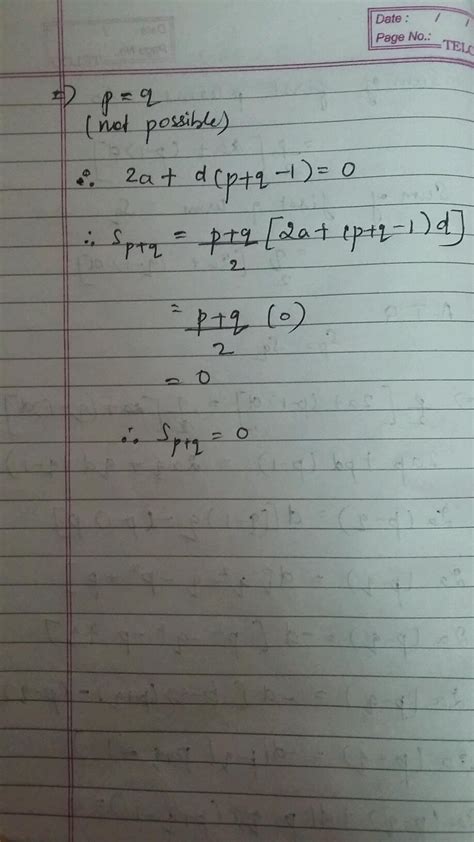 Date : / /
Page No.:
TELC
⇒) p = q
(not possible)
∴ 2a + d(p+q-1) = 0
∴ S_{p+q} = \frac{p+q}{2} [2a + (p+q-1)d]
= \frac{p+q}{2} (0)
= 0
∴ S_{p+q} = 0